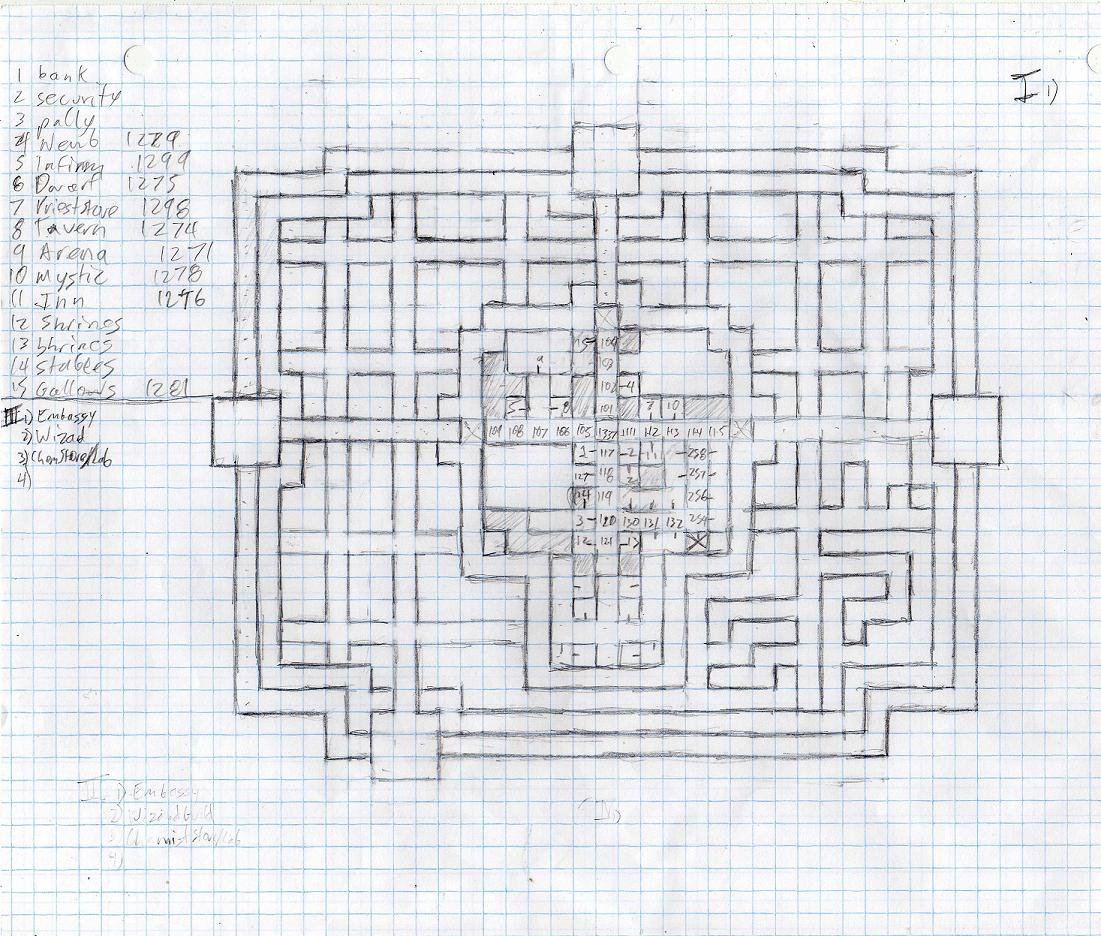 1 bank
I 1)
2 security
3 pally
4 Newb 1289
5 Infirm 1299
6 Dwarf 1275
7 Prieststore 1298
8 Tavern 1274
9 Arena 1271
10 Mystic 1278
11 Inn 1276
12 Shrines
13 Shrines
14 Stables
15 Gallows 1281
III 1) Embassy
2) Wizad
3) ChemStore/Lab
4)
15 104
103
9
102 4
5 8 101 7 10
109 108 107 106 105 1337 111 112 113 114 115
1 117 2 11 258
127 118 257
14 119 256
3 120 130 131 132 254
12 121 13
II 1) Embassy
2) Wizard Guild
3) Chemist Store/Lab
4)